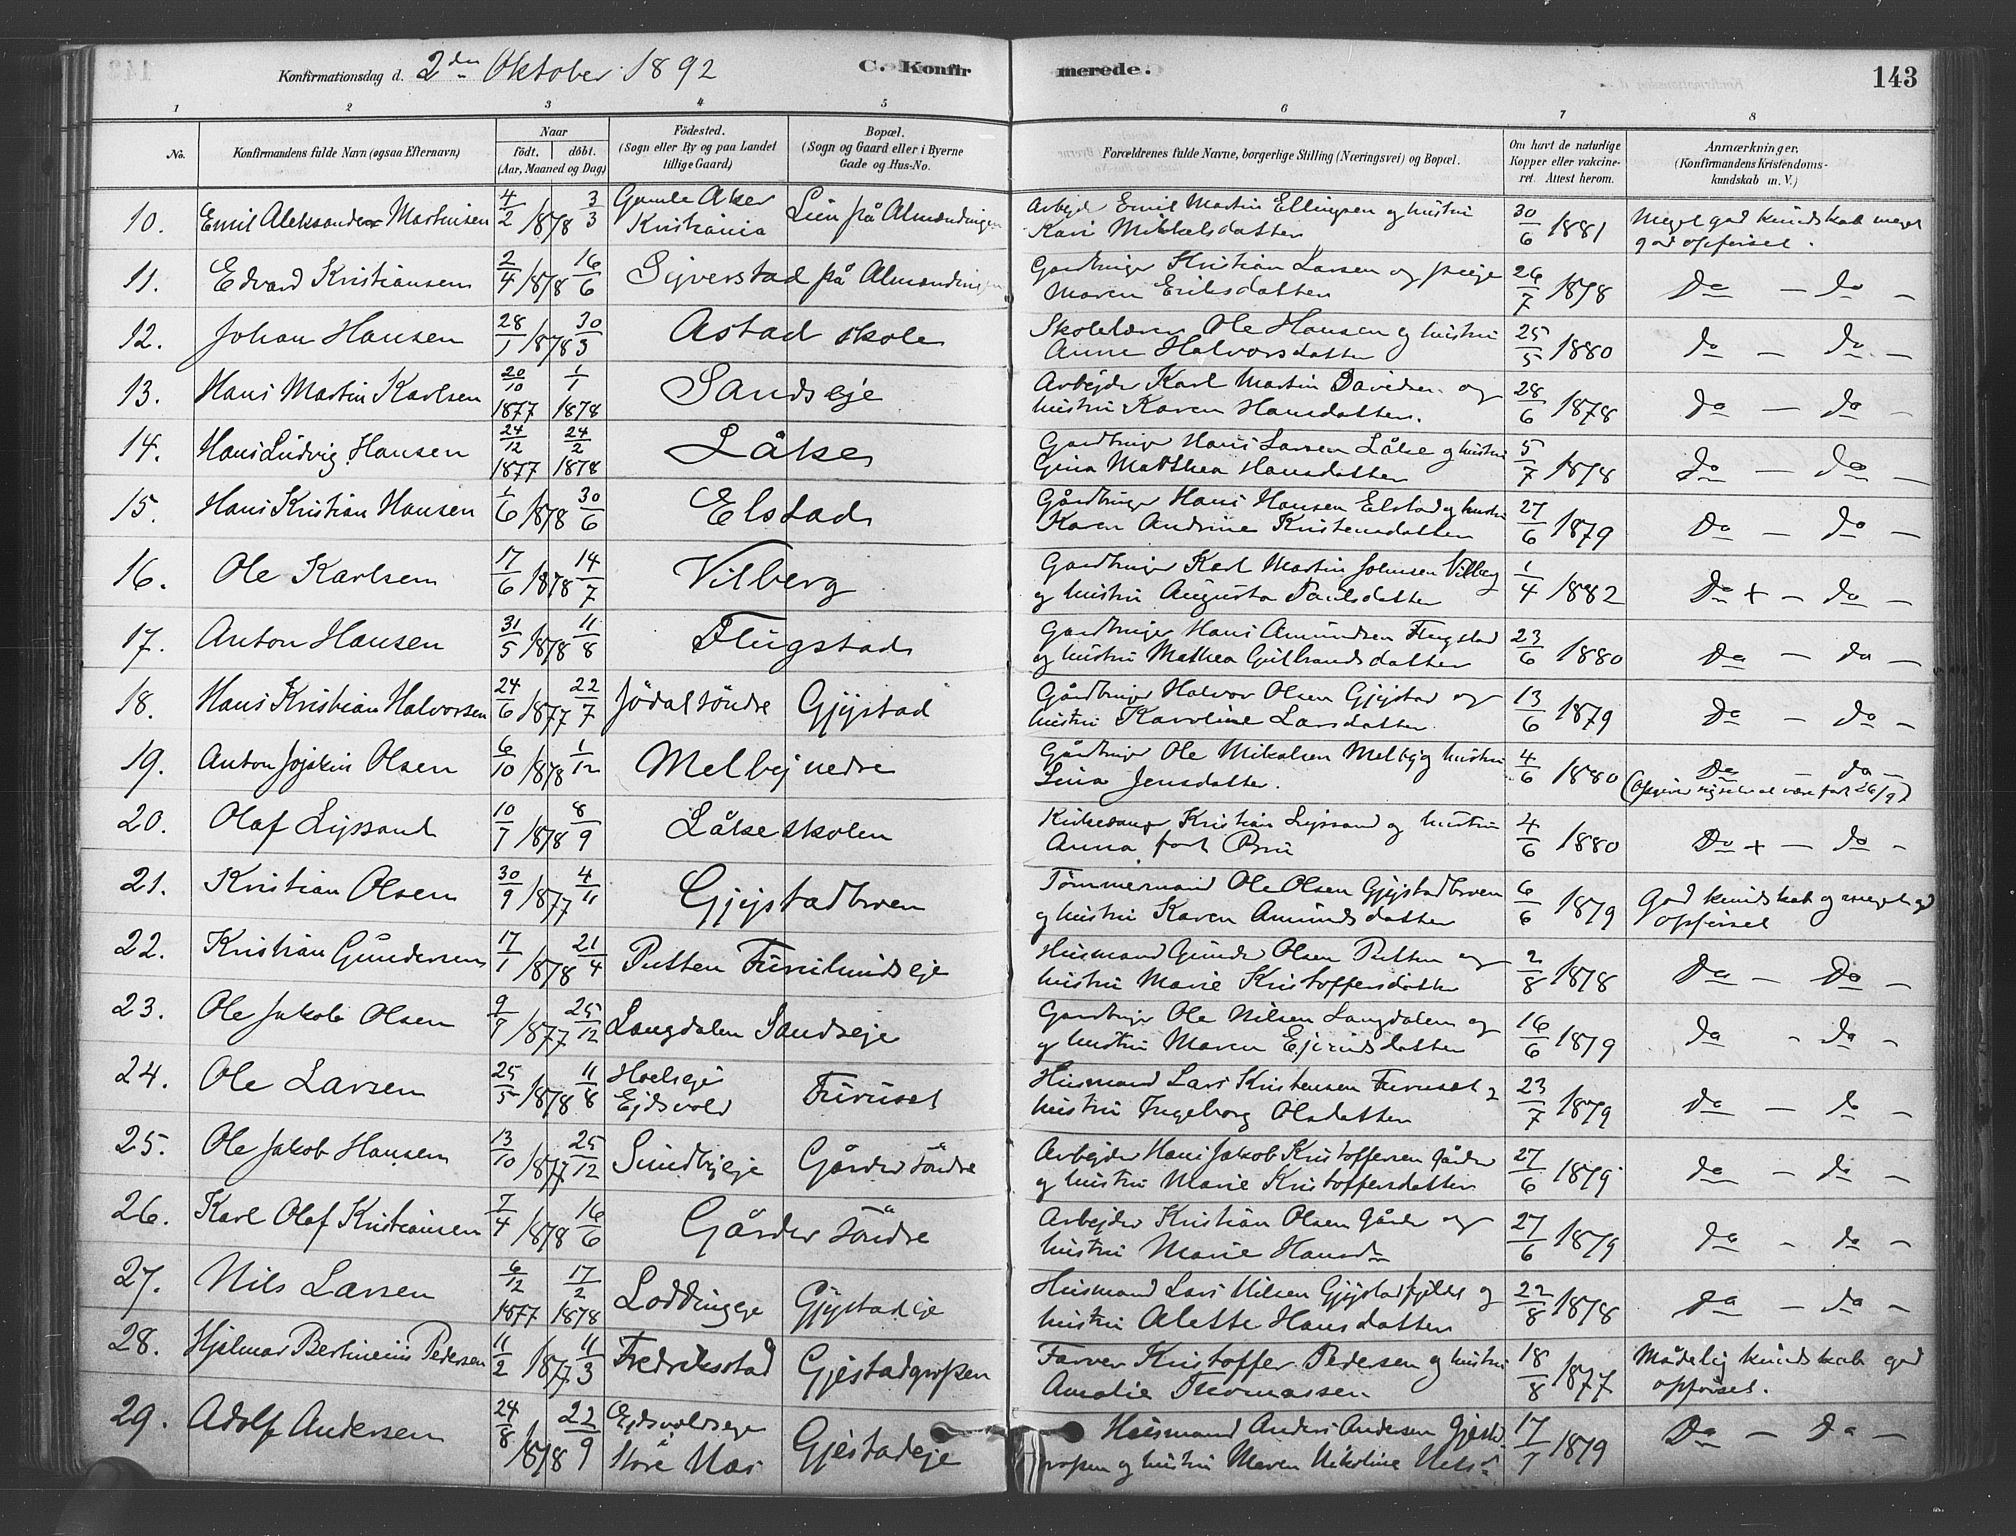 Konfirmationsdag d. 2den Oktober 1892
C. Konfirmerede.
143
1 2 3 4 5 6 7 8
No.
Konfirmandens fulde Navn (ogsaa Efternavn)
Naar
födt. döbt.
(Aar, Maaned og Dag)
Födested.
(Sogn eller By og paa Landet
tillige Gaard)
Bopæl.
(Sogn og Gaard eller i Byerne
Gade og Hus-No.
Forældrenes fulde Navne, borgerlige Stilling (Næringsvei) og Bopæl.
Om havt de naturlige
Kopper eller vakcine-
ret. Attest herom.
Anmærkninger.
(Konfirmandens Kristendoms-
kundskab m. V.)
10. Emil Aleksander Martinsen 4/2 1878 3/3 Gamle Aker Kristiania Lien på Almændingen Arbejd. Emil Martin Ellingsen og hustru Kari Mikkelsdatter 30/6 1881 Meget god kundskab meget god opførsel.
11. Edvard Kristiansen 2/4 1878 16/6 Sijverstad på Almændingen Gardbruger Kristian Larsen og Maren Eriksdatter 26/7 1878 Do — do —
12. Johan Hansen 28/1 1878 30/3 Astad skole Skolelærer Ole Hansen og hustru Anne Halvorsdatter 25/5 1880 do — do —
13. Hans Martin Karlsen 20/10 1877 1/1 1878 Sandseje Arbejder Karl Martin Davidsen og hustru Karen Hansdatter. 28/6 1878 do — do —
14. Hans Ludvig Hansen 24/12 1877 24/2 1878 Låke Gardbruger Hans Larsen Låke og hustru Gina Mathea Hansdatter 5/7 1878 do — do —
15. Hans Kristian Hansen 1/6 1878 30/6 Elstad Gårdbruger Hans Hansen Elstad og hustru Karen Andrine Kristensdatter 27/6 1879 Do — do —
16. Ole Karlsen 17/6 1878 14/7 Vilberg Gardbruger Karl Martin Johnsen Vilberg og hustru Augusta Paulsdatter 1/4 1882 Do + — do —
17. Anton Hansen 31/5 1878 11/8 Flugstad Gardbruger Hans Amundsen Flugstad og hustru Mathea Gulbrandsdatter 23/6 1880 Do — do —
18. Hans Kristian Halvorsen 24/6 1877 22/7 Jödal söndre Gjijstad Gårdbruger Halvor Olsen Gjijstad og hustru Karoline Larsdatter. 13/6 1879 Do — do —
19. Anton Jojakin Olsen 6/10 1878 1/12 Melbij nedre Gårdbruger Ole Mikalsen Melbij og hustru Lina Jensdatter. 4/6 1880 Do — do —
20. Olaf Lijssand 10/7 1878 8/9 Låkeskolen Kirkesanger Kristian Lijssand og hustru Anna født Bru 4/6 1880 Do + — do -
21. Kristian Olsen 30/9 1877 4/11 Gjijstadbroen Tømmermand Ole Olsen Gjijstadbroen og hustru Karen Amundsdatter 6/6 1879 God kundskab og meget god opførsel
22. Kristian Gundersen 17/1 1878 21/4 Putten Furulundseje Husmand Gunder Olsen Putten og hustru Marie Kristoffersdatter 2/8 1878 Do — Do —
23. Ole Jakob Olsen 9/9 1877 25/12 Langdalen Sandseje Gardbruger Ole Nilsen Langdalen og og hustru Maren Ejvindsdatter 16/6 1879 Do - do —
24. Ole Larsen 25/5 1878 11/8 Hoelseje Ejdsvold Furuset Husmand Lars Kristensen Furuset og hustru Ingeborg Olsdatter 23/7 1879 do — do —
25. Ole Jakob Hansen 13/10 1877 25/12 Sundbijeje Gårder söndre Arbejder Hans Jakob Kristoffersen Gårder og hustru Marie Kristoffersdatter 27/6 1879 do — do —
26. Karl Olaf Kristiansen 7/4 1878 16/6 Gårder söndre Arbejder Kristian Olsen Gårder og hustru Marie Hansd. 27/6 1879 do — do —
27. Nils Larsen 6/12 1877 17/2 1878 Loddingeje Gjijstadeje Husmand Lars Nilsen Gjijstad og hustru Alette Hansdatter 22/8 1878 do — do —
28. Hjalmar Bertineius Pedersen 11/2 1877 11/3 Fredriksstad Gjestadgropen Farver Kristoffer Pedersen og hustru Amalie Thomassen 18/8 1877 Mådelig kundskab god opførsel.
29. Adolf Andersen 24/8 1878 22/9 Ejdsvoldseje Störe Næs Gjestadeje Husmand Anders Andersen Gjestadgropen og hustru Maren Nikoline Nilsd. 17/7 1879 Do — Do —